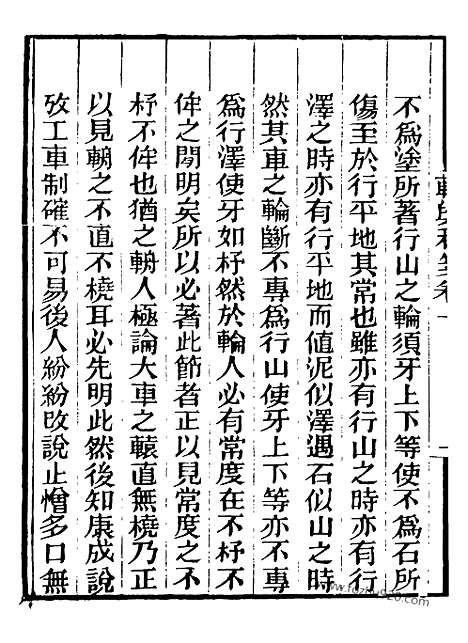 不為塗所著行山之輪須牙上下等使不為石所
傷至於行平地其常也雖亦有行山之時亦有行
澤之時亦有行平地而值泥似澤遇石似山之時
然其車之輪斷不專為行山使牙上下等亦不專
為行澤使牙如杼然於輪人必有常度在不杼不
侔之閒明矣所以必著此節者正以見常度之不
杼不侔也猶之輈人極論大車之轅直無橈乃正
以見輈之不直不橈耳必先明此然後知康成說
攷工車制確不可易後人紛紛改說止憎多口無